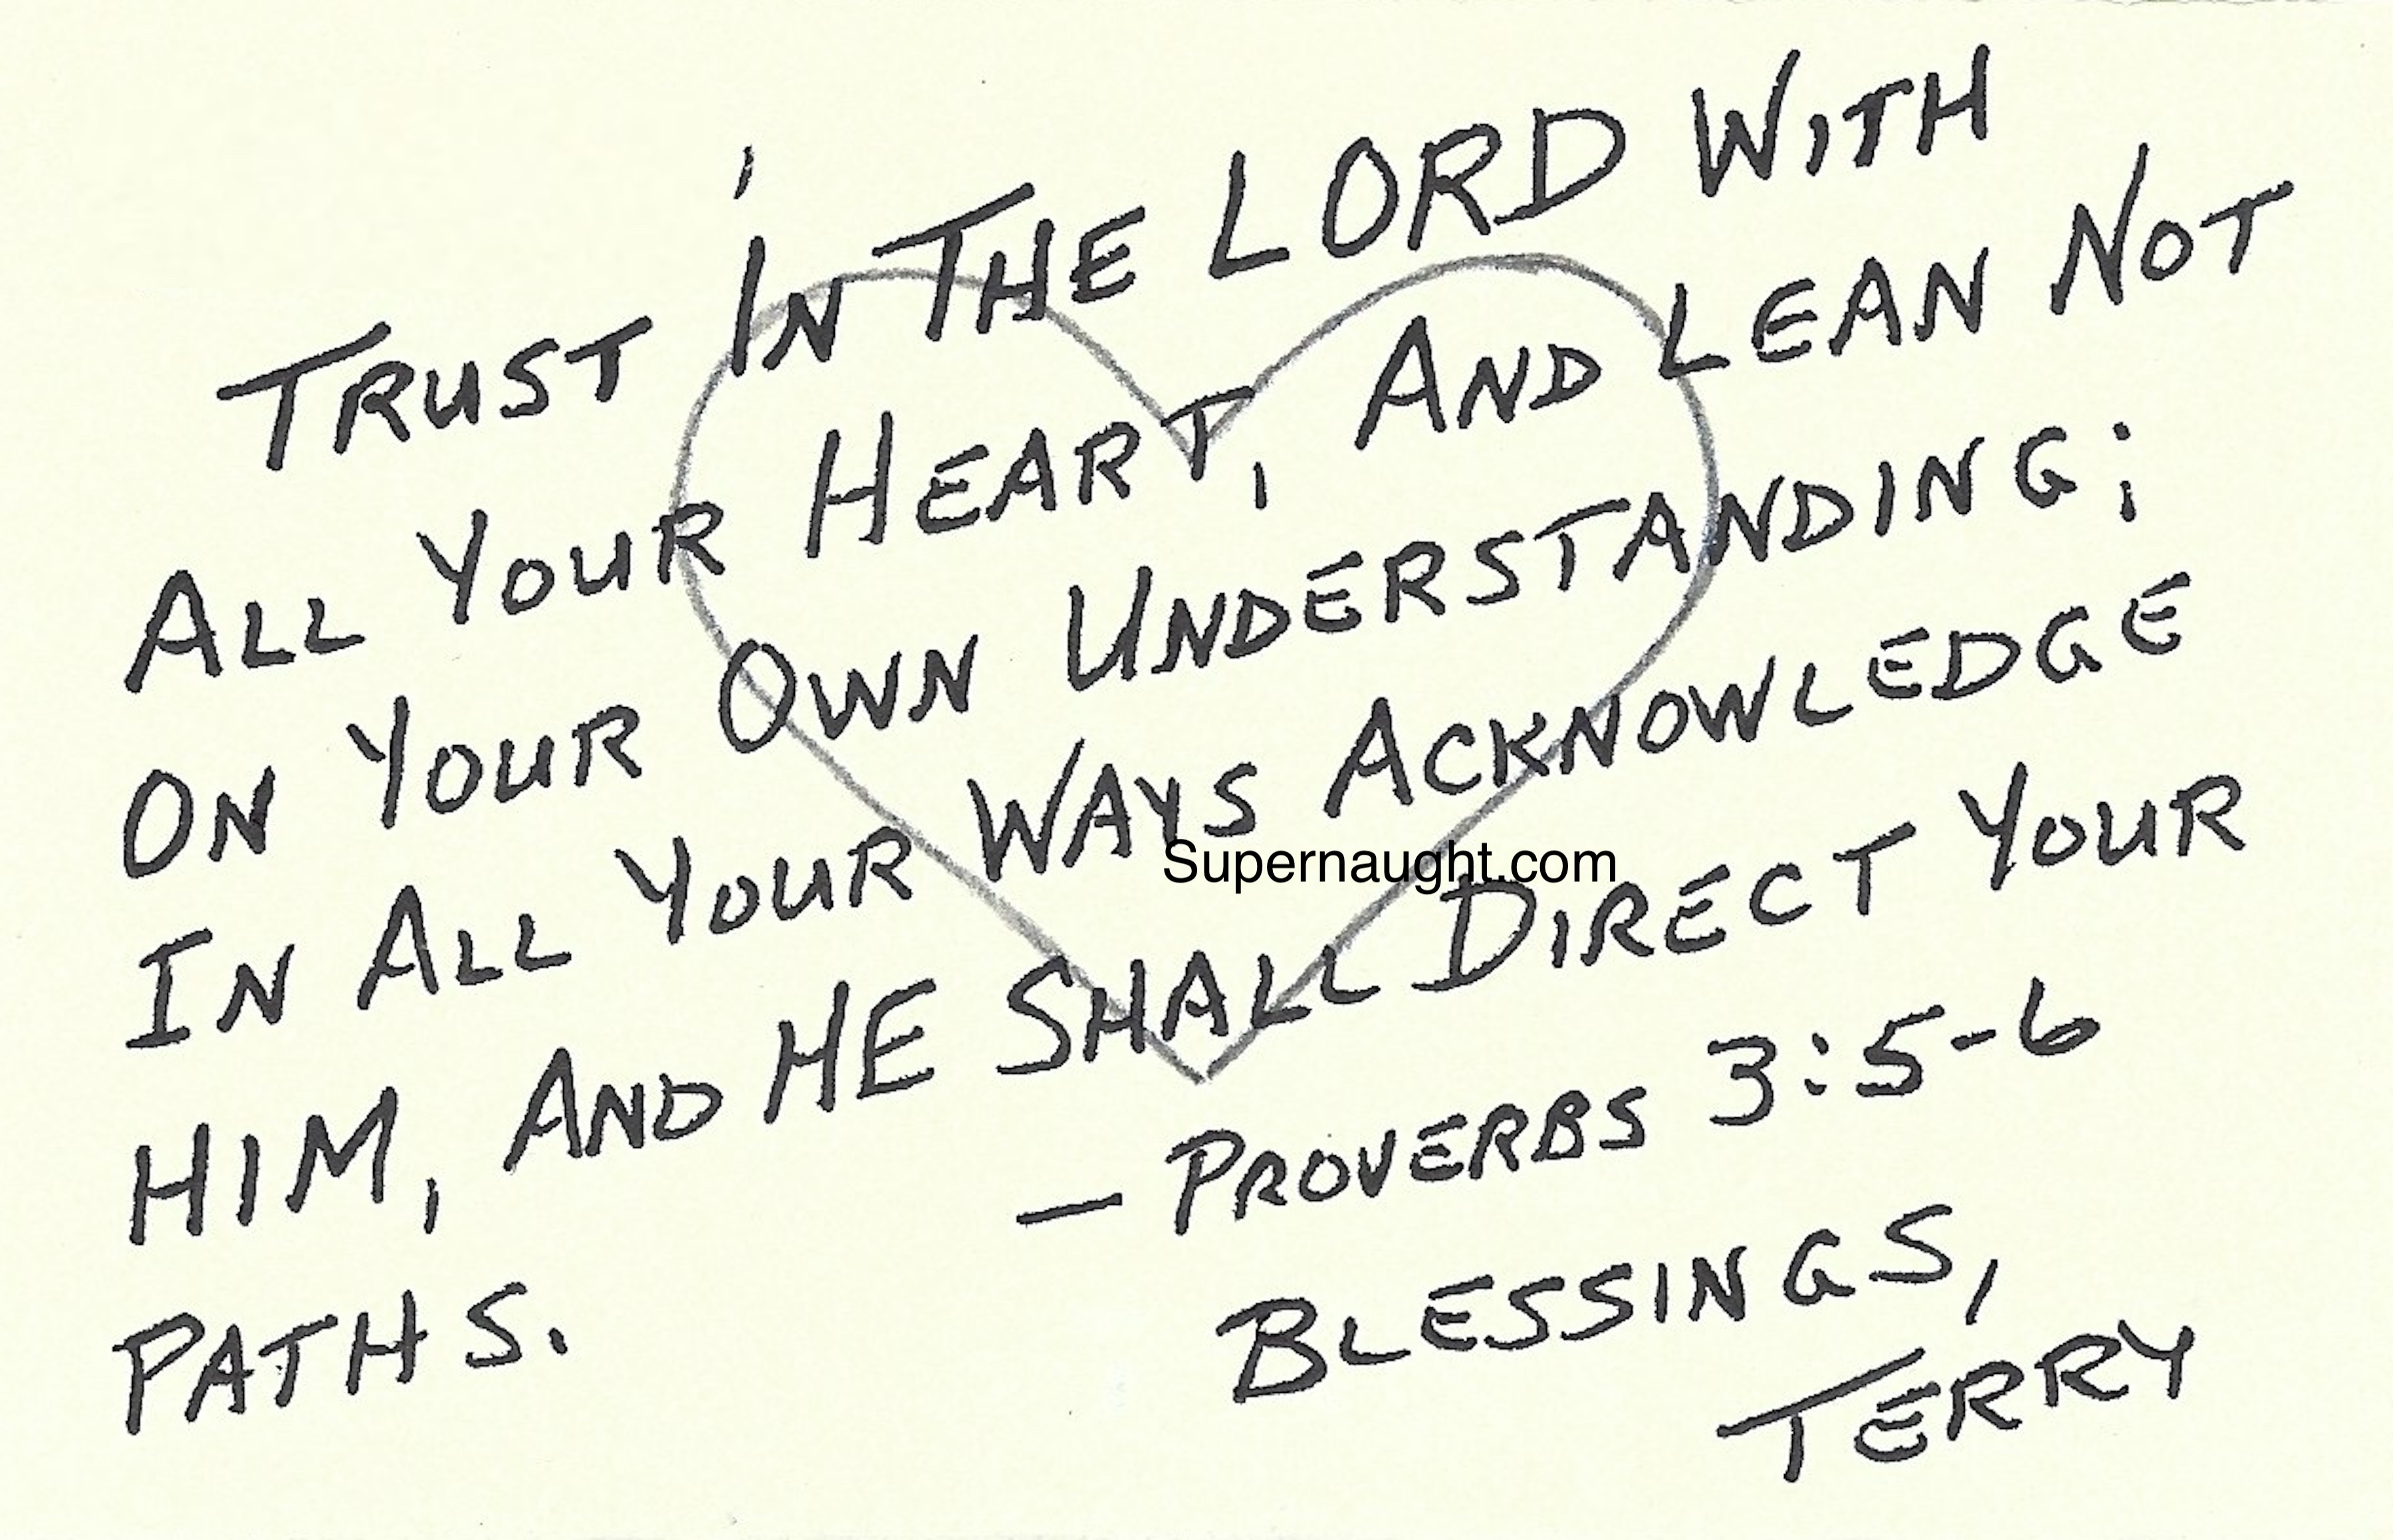 TRUST IN THE LORD WITH
ALL YOUR HEART, AND LEAN NOT
ON YOUR OWN UNDERSTANDING;
IN ALL YOUR WAYS ACKNOWLEDGE
Supernaught.com
HIM, AND HE SHALL DIRECT YOUR
PATHS.
— PROVERBS 3:5-6
BLESSINGS,
TERRY